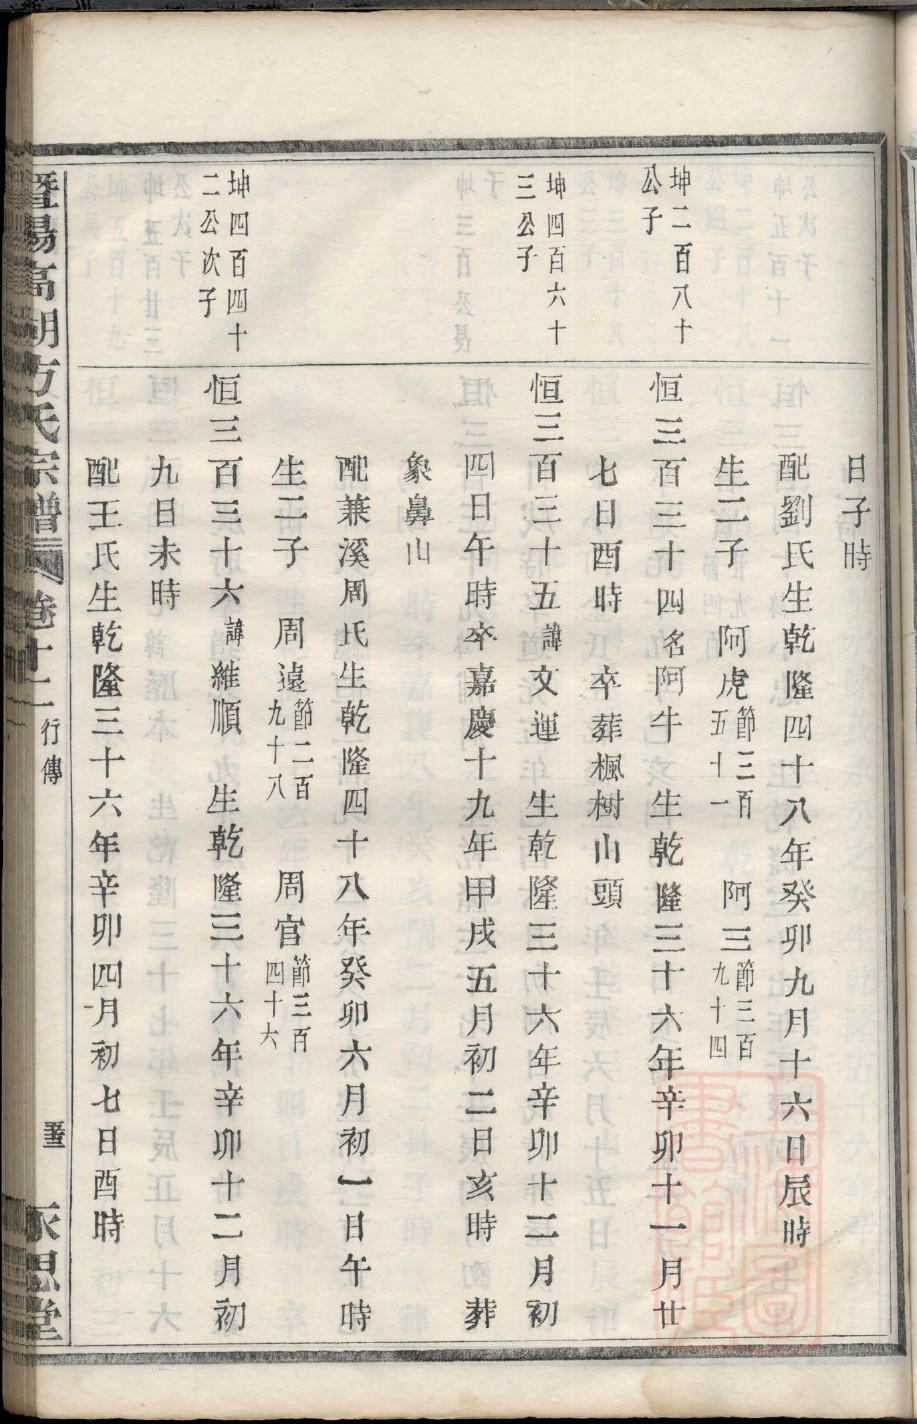 日子時
配劉氏生乾隆四十八年癸卯九月十六日辰時
生二子 阿虎節三百五十一 阿三節三百九十四
坤二百八十公子
恒三百三十四名阿牛 生乾隆三十六年辛卯十一月廿
七日酉時 卒葬楓樹山頭
坤四百六十三公子
恒三百三十五諱文運 生乾隆三十六年辛卯十二月初
四日午時卒嘉慶十九年甲戌五月初二日亥時 葬
象鼻山
配兼溪周氏生乾隆四十八年癸卯六月初一日午時
生二子 周遠節二百九十八 周官節三百四十六
坤四百四十二公次子
恒三百三十六諱維順 生乾隆三十六年辛卯十二月初
九日未時
配王氏生乾隆三十六年辛卯四月初七日酉時
暨陽高湖方氏宗譜 卷十二 行傳 永思堂